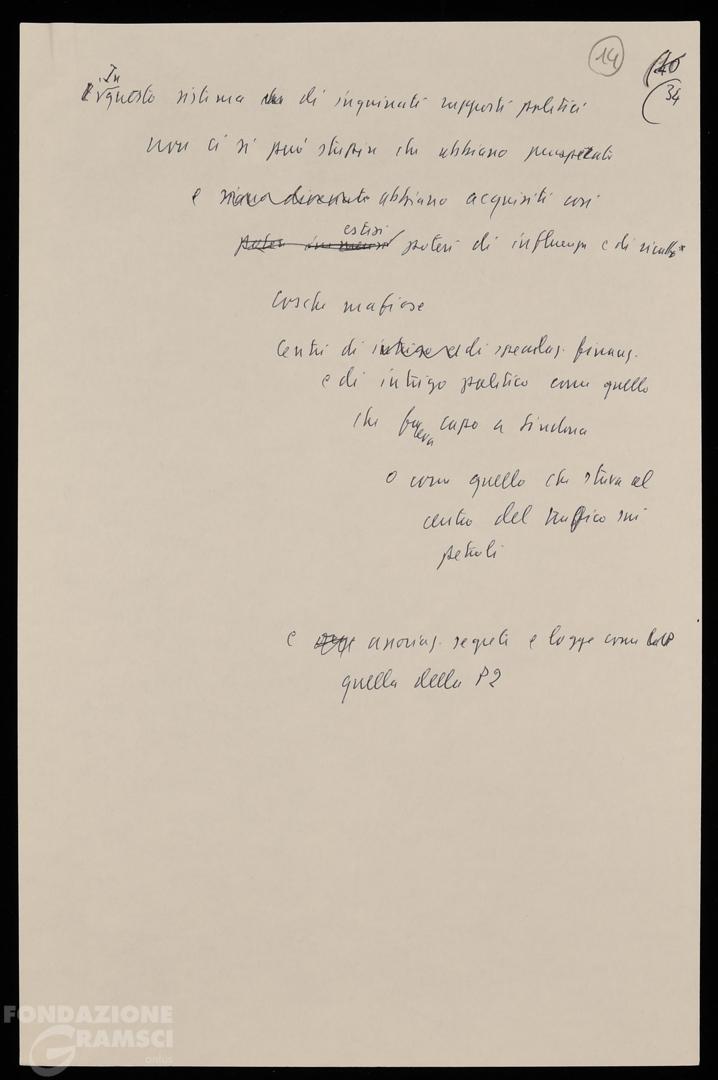 14
34
In
questo sistema di inquinati rapporti politici
non ci si può stupire che abbiano prosperato
e siano diventate abbiano acquisiti così
estesi
poteri immensi poteri di influenza e di ricatto
cosche mafiose
centri di intrigo e di speculaz. finanz.
e di intrigo politico come quello
che faceva capo a Sindona
o come quello che stava al
centro del traffico sui
petroli
e associaz. segrete e logge come
quella della P2
FONDAZIONE
GRAMSCI
onlus